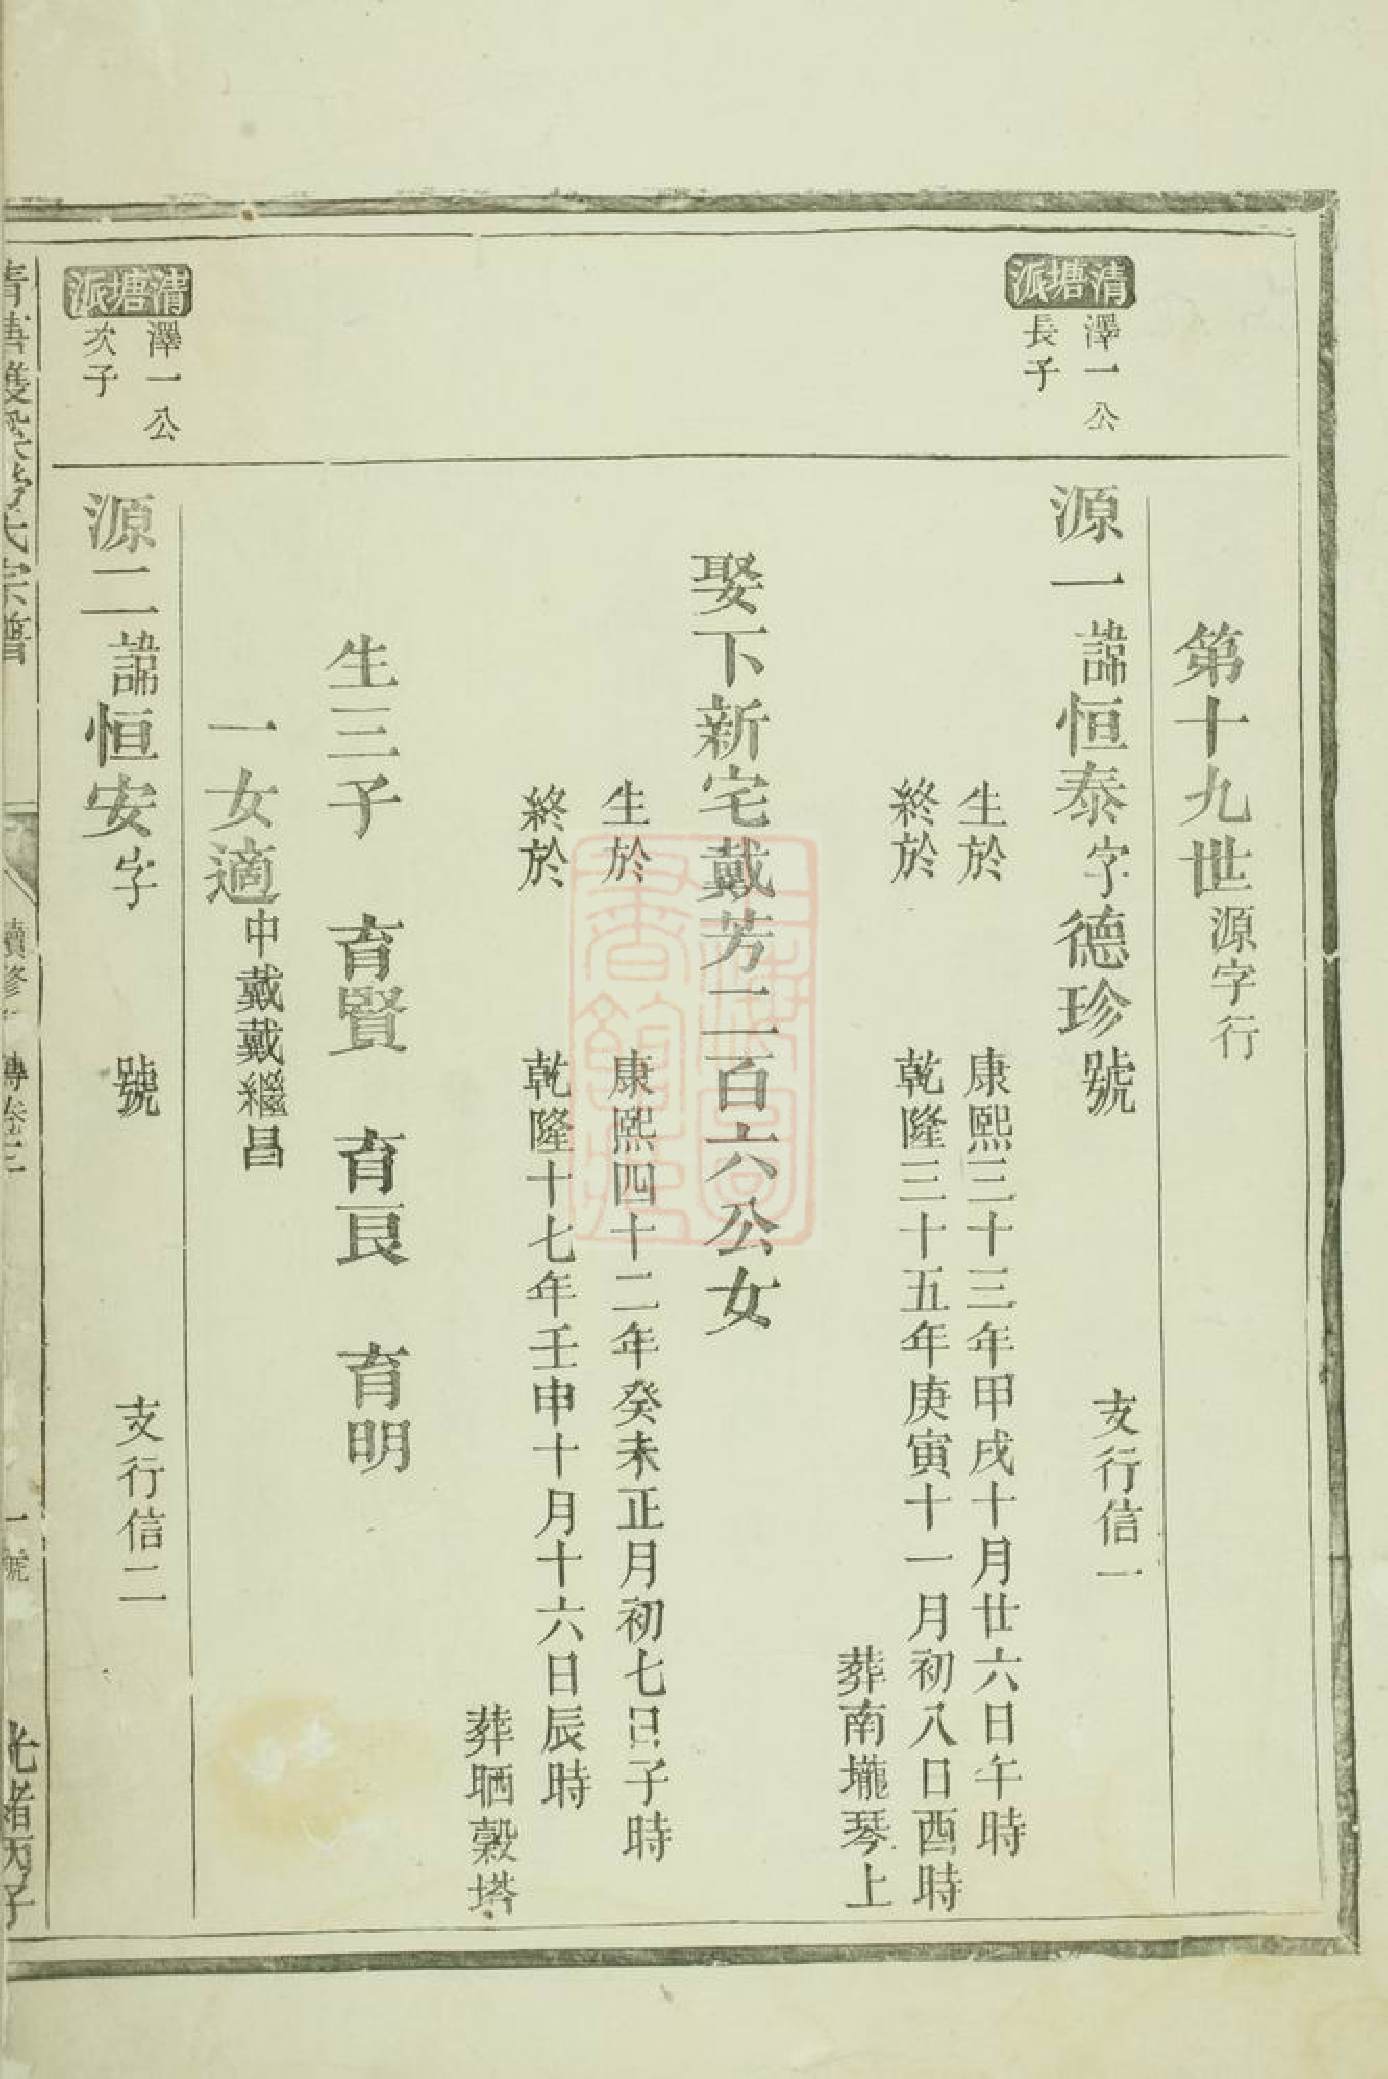 第十九世源字行
清塘派
澤一公
長子
源一諱恒泰字德珍號 支行信一
生於 康熙三十三年甲戌十月廿六日午時
終於 乾隆三十五年庚寅十一月初八日酉時
葬南壠琴上
娶下新宅戴芳二百六公女
生於 康熙四十二年癸未正月初七日子時
終於 乾隆十七年壬申十月十六日辰時
葬晒穀塔
生三子 育賢 育良 育明
一女適中戴戴繼昌
清塘派
澤一公
次子
源二諱恒安字 號 支行信二
氏宗譜
續修 傳卷三
一號
光緒丙子
上海圖書館藏